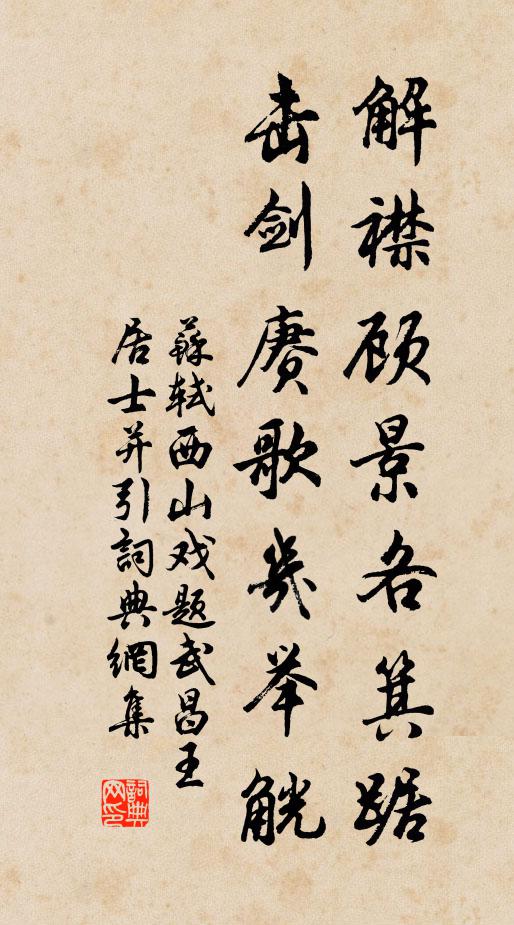 解襟顾景各箕踞
击剑赓歌几举觥
苏轼西山戏题武昌王
居士并引詞典網集
詞典网印